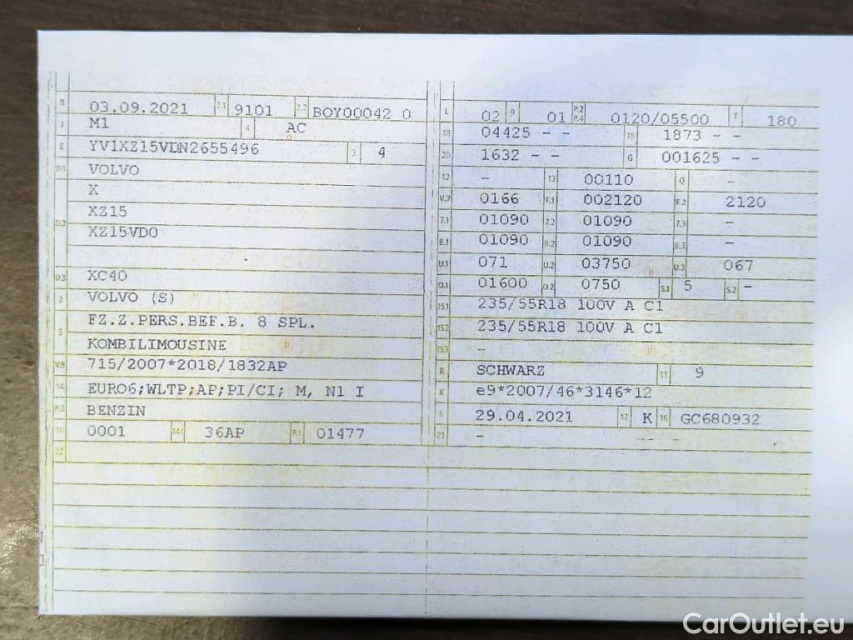 B 03.09.2021 2.1 9101 2.2 BOY00042 0
J M1 4 AC
E YV1XZ15VDN2655496 3 4
D.1 VOLVO
X
D.2 XZ15
XZ15VD0
D.3 XC40
2 VOLVO (S)
5 FZ.Z.PERS.BEF.B. 8 SPL.
KOMBILIMOUSINE
V.9 715/2007*2018/1832AP
14 EURO6;WLTP;AP;PI/CI; M, N1 I
P.3 BENZIN
10 0001 14.1 36AP P.1 01477
22
L 02 9 01 P.2 P.4 0120/05500 T 180
18 04425 - - 19 1873 - -
20 1632 - - G 001625 - -
12 - 13 00110 Q -
V.7 0166 F.1 002120 F.2 2120
7.1 01090 7.2 01090 7.3 -
8.1 01090 8.2 01090 8.3 -
U.1 071 U.2 03750 U.3 067
O.1 01600 O.2 0750 S.1 5 S.2 -
15.1 235/55R18 100V A C1
15.2 235/55R18 100V A C1
15.3 -
R SCHWARZ 11 9
K e9*2007/46*3146*12
6 29.04.2021 17 K 16 GC680932
21 - -- -
CarOutlet.eu